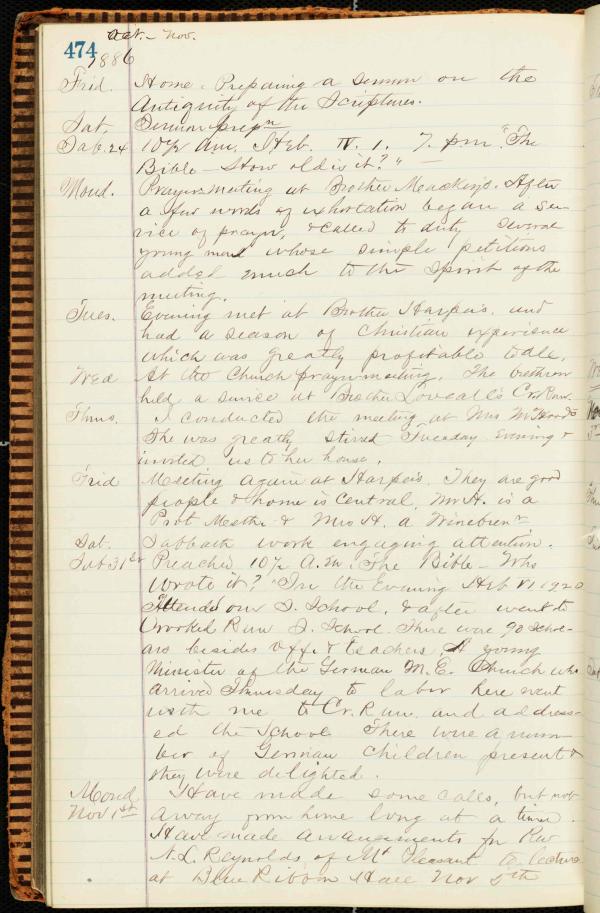 474 Oct. - Nov.
1886
Frid. Home. Preparing a sermon on the
Antiquity of the Scriptures.
Sat. Sermon prepn
Sab. 24 10½ A.M. Heb. IV. 1. 7. P.M. "The
Bible - How old is it?" -
Mond. Prayermeeting at Brother Mackey's. After
a few words of exhortation began a ser-
vice of prayer, & called to duty several
young men whose simple petitions
added much to the spirit of the
meeting.
Tues. Evening met at Brother Harper's. and
had a season of Christian experience
which was greatly profitable to all.
Wed At the Church prayermeeting. The brethren
held a service at Brother Loveall's Cr. Run.
Thurs. I conducted the meeting at Mrs
She was greatly stired Tuesday Evening &
invited us to her house.
Frid Meeting again at Harper's. They are good
people & home is central. Mr H. is a
Prot. Meth. & Mrs H. a Winebrenr
Sat. Sabbath work engaging attention.
Sab 31st Preached 10½ A.M. The Bible - Who
wrote it? In the Evening Heb VI 19 20
Attended our S. School, & after went to
Crooked Run S. School. There were 90 schol-
ars besides offi & teachers. A young
Minister of the German M. E. Church who
arrived Thursday to labor here went
with me to Cr. Run and address-
ed the School There were a num-
ber of German Children present &
they were delighted.
Mond Have made some calls, but not
Nov 1st away from home long at a time.
Have made arrangements for Rev
N. L. Reynolds of Mt Pleasant to lecture
at Blue Ribbon Hall Nov 5th